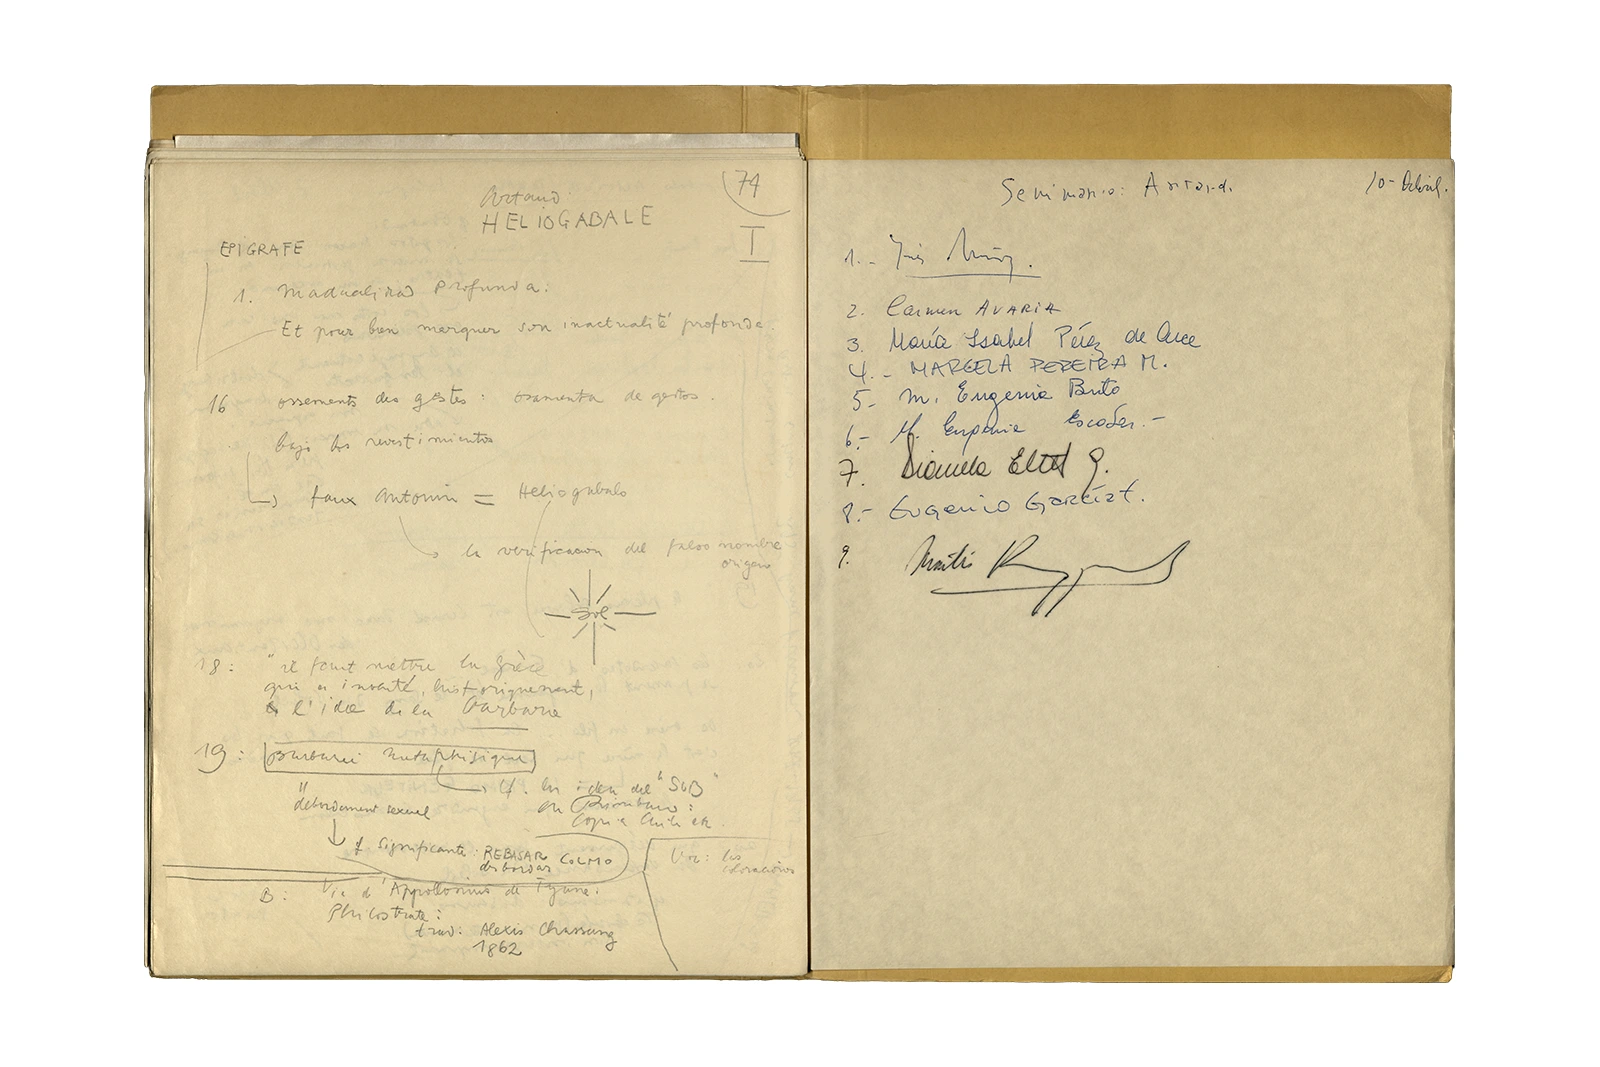 Artaud
HELIOGABALE
74
I
EPIGRAFE
1. Profunda:
Et pour bien marquer son inactualité profonde.
16 ossements des gestes: osamenta de gestos.
bajo los revestimientos
faux Antonin = Heliogabalo
la verificacion del falso nombre
origen
Sol
18: "il faut mettre la Grèce
qui a inventé, historiquement,
l'idée de la barbarie
19: Barbarie metaphisique
cf. la idea del "SUB"
en
Copia Chile etc.
debordement sexuel
significante: REBASAR COLMO
desbordar
Ver: las
B: Vie d'Appollonius de Tyane.
Philostrate:
trad: Alexis Chassang
1862
Seminario: Artaud.
10-Abril.
1.- Inés
2. Carmen AVARIA
3. María Isabel Pérez de Arce
4.- MARCELA PEREIRA M.
5- M. Eugenia Brito
6.- M. Eugenia Escobar.-
7. Diamela Eltit G.
8.- Eugenio García
9.